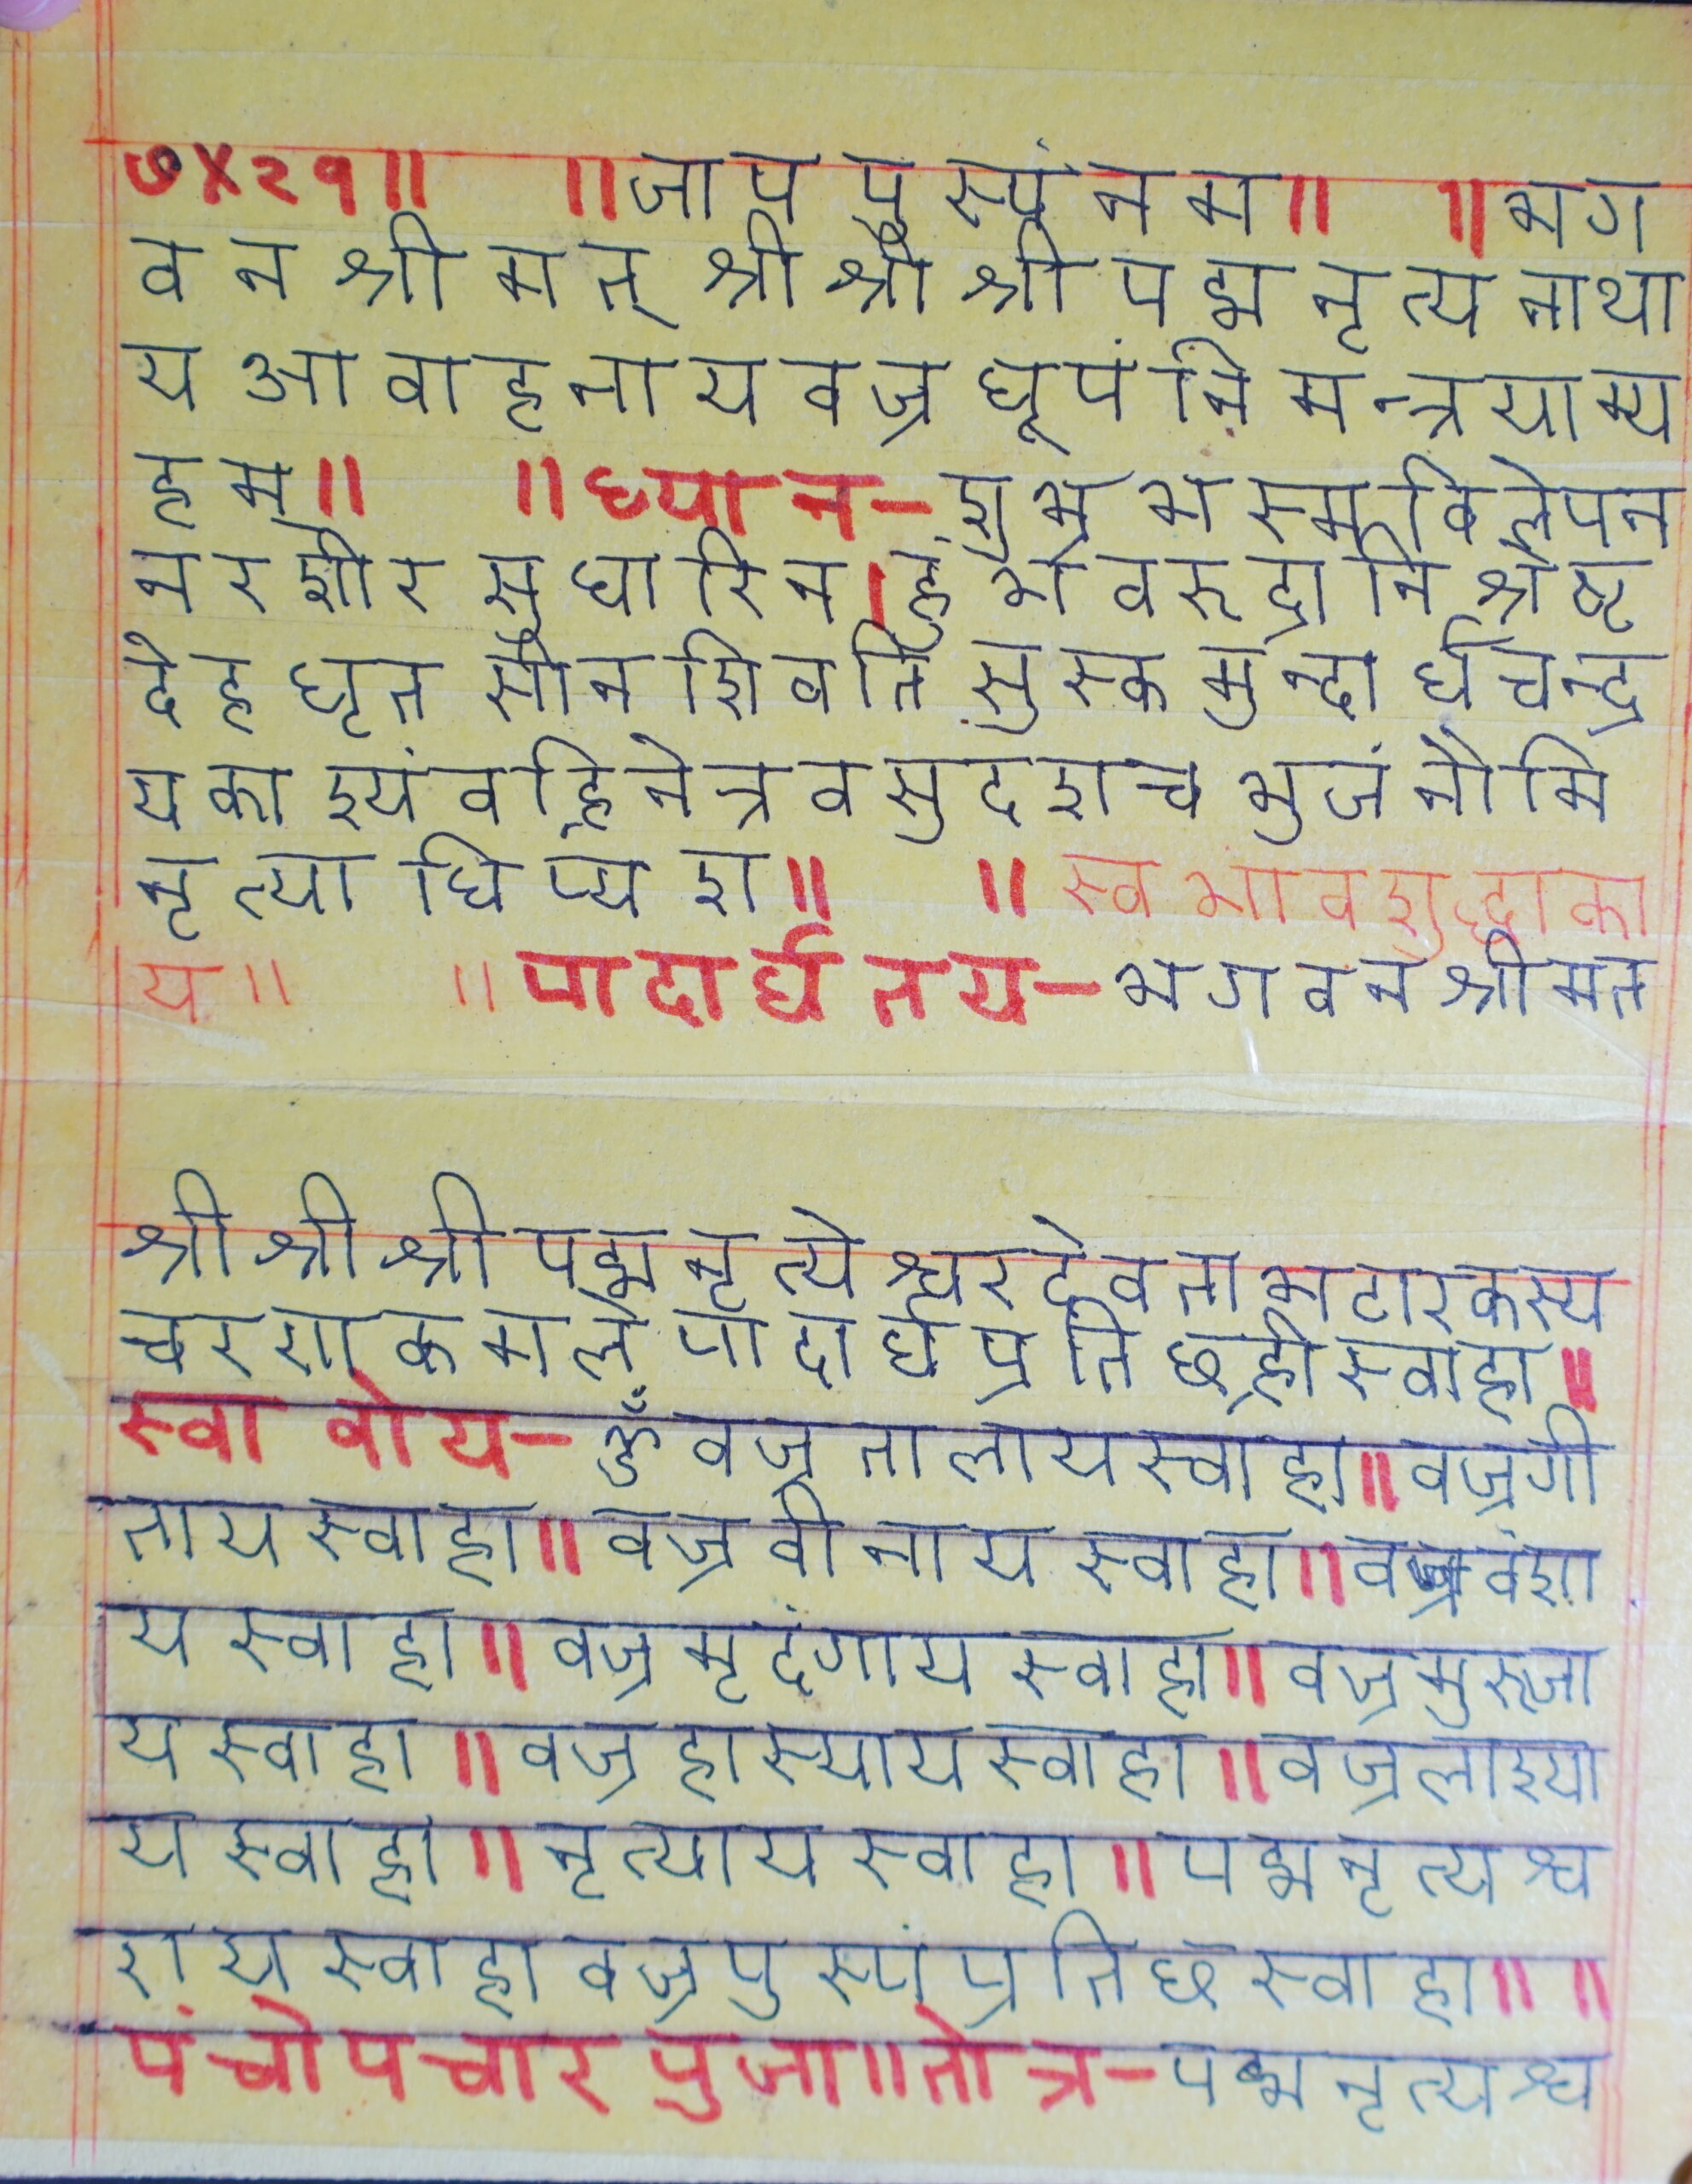 ७x२१॥ ॥जाप पुस्पं नम॥ ॥भग
वन श्रीमत् श्री श्री श्री पद्म नृत्य नाथा
य आवाहनाय वज्र धूपं निमन्त्रयाम्य
हम॥ ॥ध्यान- शुभ्र भस्म विलेपन
नरशीर सुधारिन। हुं भैवरुद्रानि श्रेष्ट
देह धृत सौन शिवति सुस्क मुन्दार्घचन्द्र
यकाश्यं वह्नि नेत्र वसुदशच भुजं नौमि
नृत्याधिप्यश॥ ॥स्वभाव शुद्धाका
य॥ ॥पादार्घ तय- भगवन श्रीमत
श्री श्री श्री पद्म नृत्येश्वर देवता भटारकस्य
चरणकमले पादार्घ प्रतिछ ह्री स्वाहा॥
स्वा वोय- ॐ वज्र तालाय स्वाहा॥ वज्रगी
ताय स्वाहा॥ वज्र वीनाय स्वाहा॥ वज्र वंशा
य स्वाहा॥ वज्र मृदंगाय स्वाहा॥ वज्र मुरुजा
य स्वाहा॥ वज्र हास्याय स्वाहा॥ वज्रलाश्या
य स्वाहा॥ नृत्याय स्वाहा॥ पद्म नृत्यश्व
राय स्वाहा वज्रपुस्पं प्रतिछ स्वाहा॥ ॥
पंचोपचार पुजा॥तोत्र- पद्म नृत्यश्व